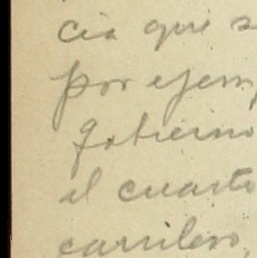 cia que s
por ejem
Gobierno
el cuarto
carriles,